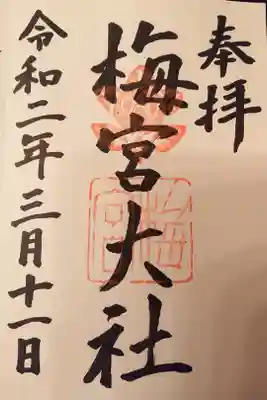 奉拝
梅宮大社
令和二年三月十一日